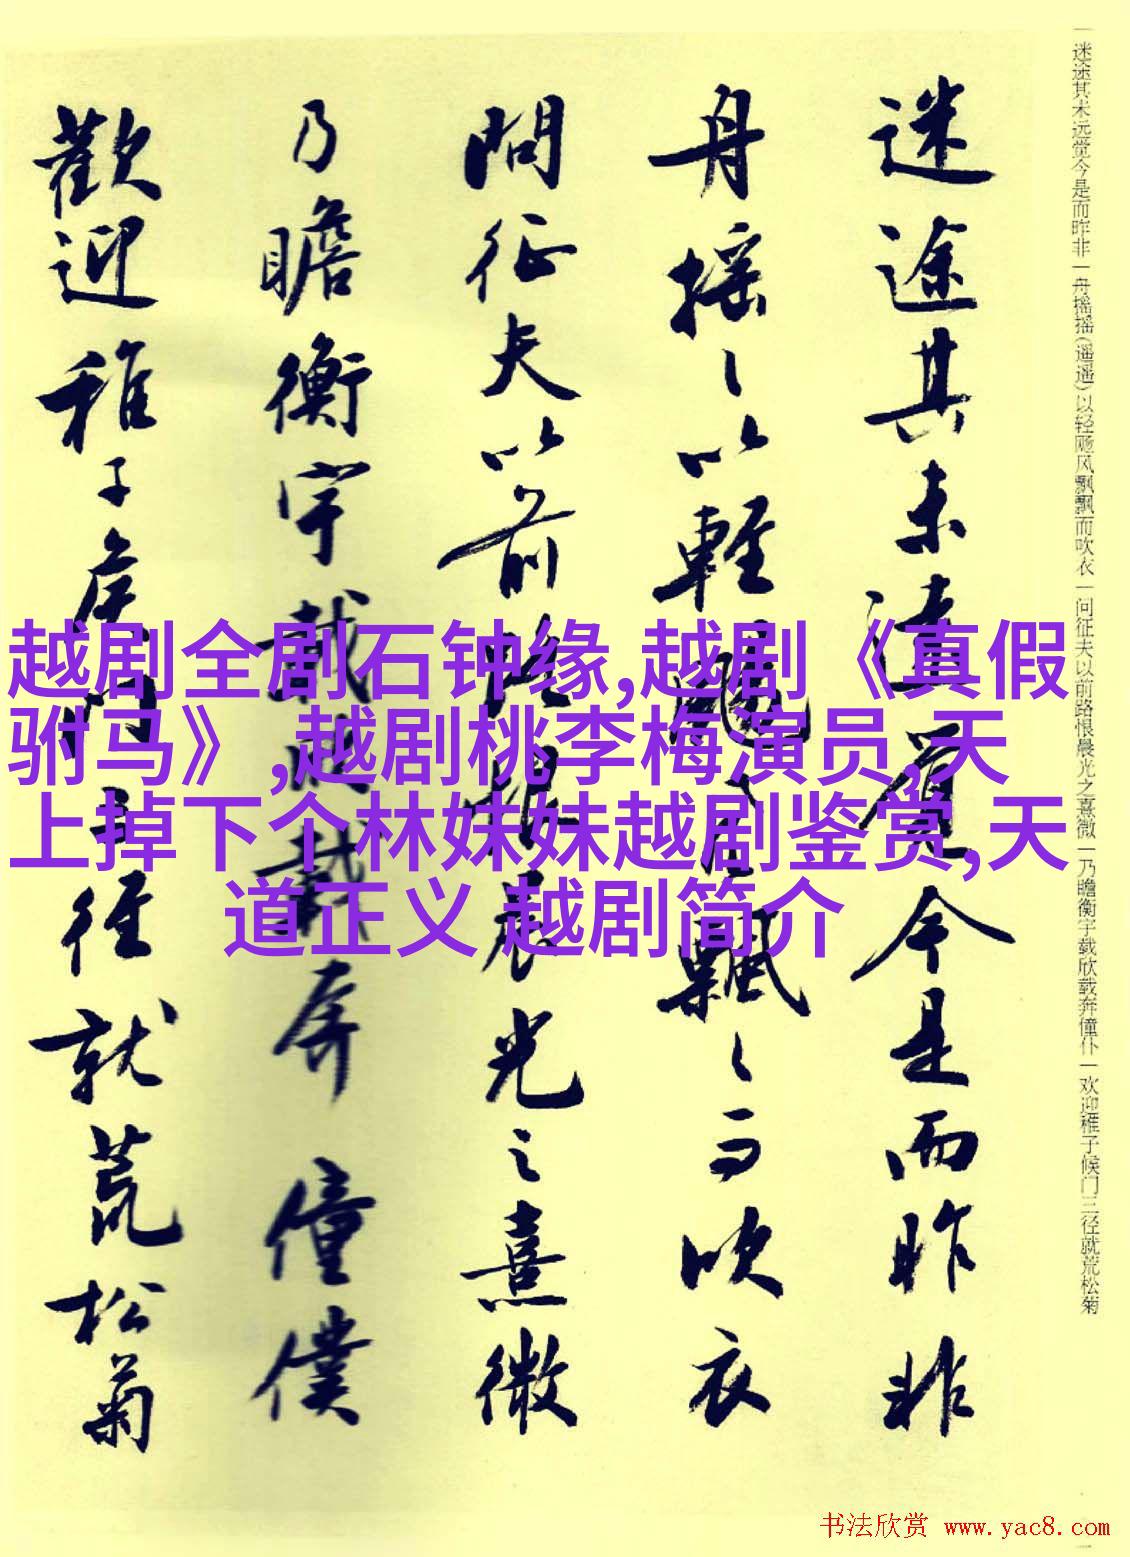 一迷途其未远觉今是而昨非一舟摇摇(遥遥)以轻飏风飘飘而吹衣一问征夫以前路恨晨光之熹微一乃瞻衡宇载欣载奔僮仆一欢迎稚子候门三径就荒松菊
迷途其未遠覺今是而昨非
舟摇〻以輕颺風飄〻而吹衣
問征夫以前路恨晨光之熹微
乃瞻衡宇載欣載奔僮僕
歡迎稚子候門三徑就荒松菊
越剧全剧石钟缘,越剧《真假
驸马》,越剧桃李梅演员,天
上掉下个林妹妹越剧鉴赏,天
道正义 越剧简介
书法欣赏 www.yac8.com